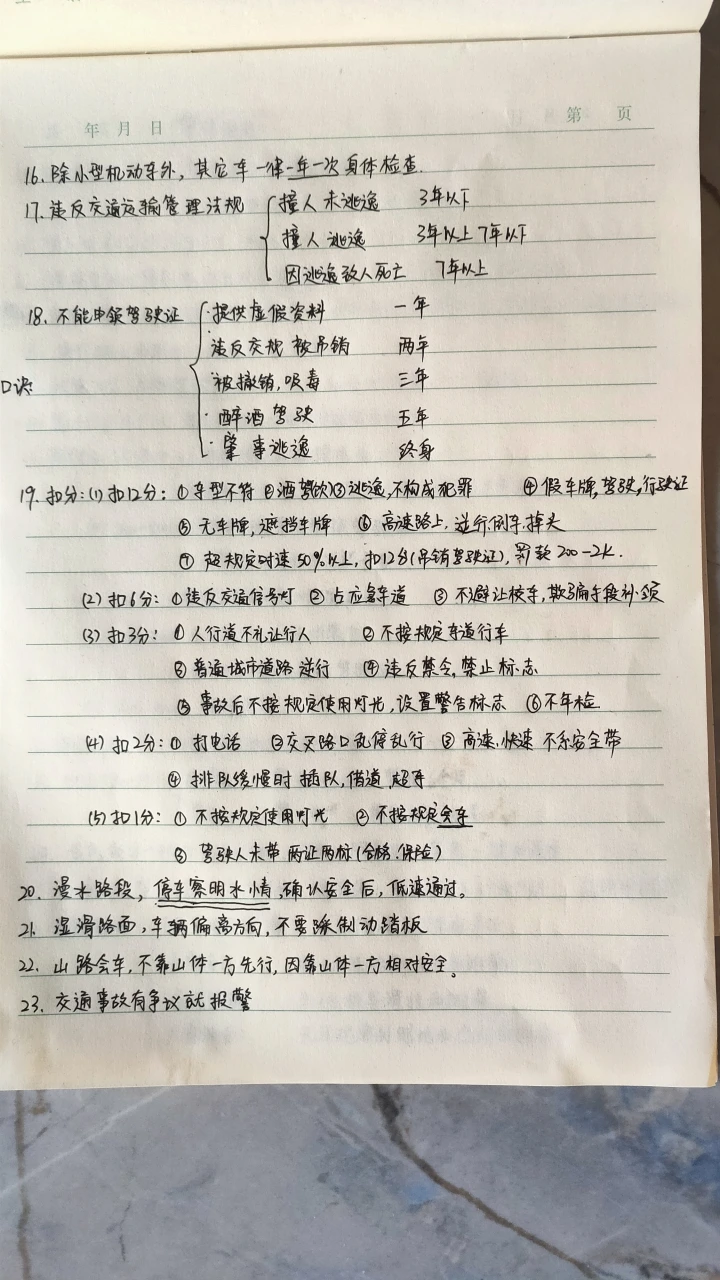 年 月 日 第 页
16. 除小型机动车外，其它车一律一年一次身体检查.
17. 违反交通运输管理法规 撞人未逃逸 3年以下
撞人逃逸 3年以上7年以下
因逃逸致人死亡 7年以上
18. 不能申领驾驶证 提供虚假资料 一年
违反交规 被吊销 两年
口诀:
被撤销,吸毒 三年
醉酒驾驶 五年
肇事逃逸 终身
19. 扣分:(1)扣12分: ①车型不符 ②酒驾(饮)③逃逸,不构成犯罪 ④假车牌,驾驶,行驶证
⑤无车牌,遮挡车牌 ⑥高速路上,逆行.倒车.掉头
⑦超规定时速50%以上,扣12分(吊销驾驶证),罚款200-2K.
(2)扣6分: ①违反交通信号灯 ②占应急车道 ③不避让校车,欺骗手段补.领
(3)扣3分: ①人行道不礼让行人 ②不按规定车道行车
③普通城市道路逆行 ④违反禁令,禁止标志
⑤事故后不按规定使用灯光,设置警告标志 ⑥不年检
(4)扣2分: ①打电话 ②交叉路口乱停乱行 ③高速.快速 不系安全带
④排队缓慢时 插队,借道,超车
(5)扣1分: ①不按规定使用灯光 ②不按规定会车
③驾驶人未带两证两标(合格.保险)
20. 漫水路段,停车察明水情,确认安全后,低速通过。
21. 湿滑路面,车辆偏离方向,不要踩制动踏板
22. 山路会车,不靠山体一方先行,因靠山体一方相对安全。
23. 交通事故有争议就报警